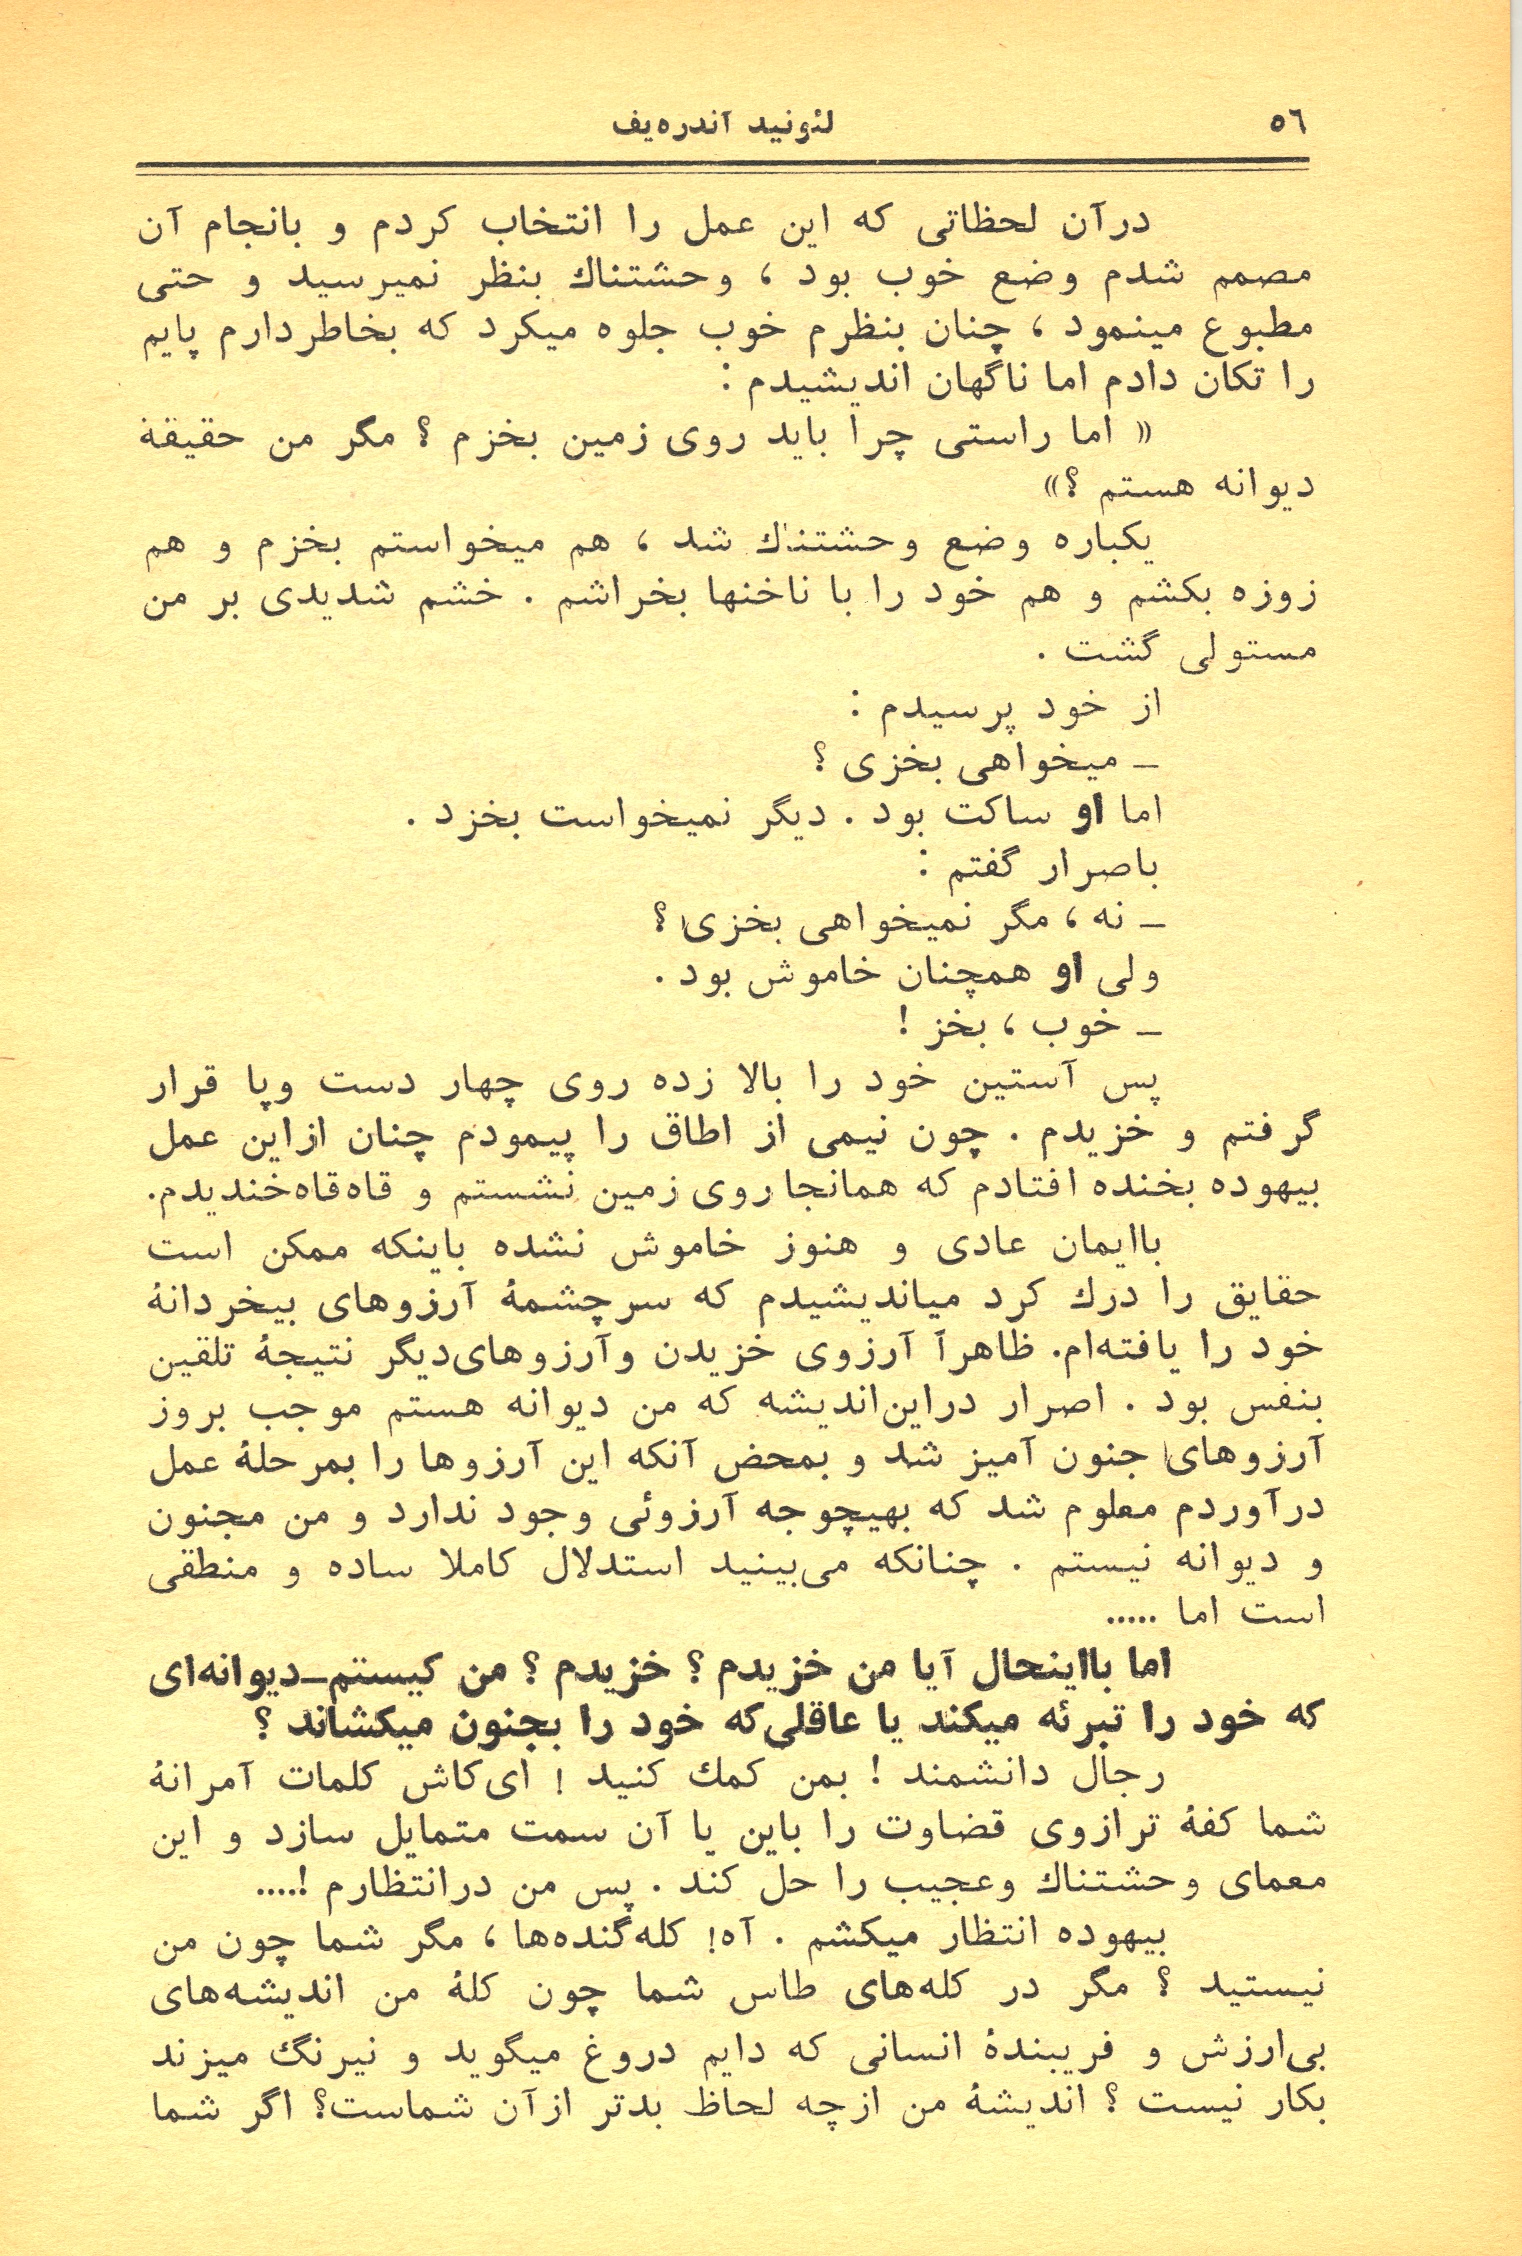 ٥٦
لئونید آندره‌یف
درآن لحظاتی که این عمل را انتخاب کردم و بانجام آن
مصمم شدم وضع خوب بود ، وحشتناك بنظر نمیرسید و حتی
مطبوع مینمود ، چنان بنظرم خوب جلوه میکرد که بخاطردارم پایم
را تکان دادم اما ناگهان اندیشیدم :
« اما راستی چرا باید روی زمین بخزم ؟ مگر من حقیقة
دیوانه هستم ؟»
یکباره وضع وحشتناك شد ، هم میخواستم بخزم و هم
زوزه بکشم و هم خود را با ناخنها بخراشم . خشم شدیدی بر من
مستولی گشت .
از خود پرسیدم :
ـ میخواهی بخزی ؟
اما او ساکت بود . دیگر نمیخواست بخزد .
باصرار گفتم :
ـ نه ، مگر نمیخواهی بخزی ؟
ولی او همچنان خاموش بود .
ـ خوب ، بخز !
پس آستین خود را بالا زده روی چهار دست وپا قرار
گرفتم و خزیدم . چون نیمی از اطاق را پیمودم چنان ازاین عمل
بیهوده بخنده افتادم که همانجا روی زمین نشستم و قاه‌قاه‌خندیدم.
باایمان عادی و هنوز خاموش نشده باینکه ممکن است
حقایق را درك کرد میاندیشیدم که سرچشمهٔ آرزوهای بیخردانهٔ
خود را یافته‌ام. ظاهراً آرزوی خزیدن وآرزوهای‌دیگر نتیجهٔ تلقین
بنفس بود . اصرار دراین‌اندیشه که من دیوانه هستم موجب بروز
آرزوهای جنون آمیز شد و بمحض آنکه این آرزوها را بمرحلهٔ عمل
درآوردم معلوم شد که بهیچوجه آرزوئی وجود ندارد و من مجنون
و دیوانه نیستم . چنانکه می‌بینید استدلال کاملا ساده و منطقی
است اما .....
اما بااینحال آیا من خزیدم ؟ خزیدم ؟ من کیستم_دیوانه‌ای
که خود را تبرئه میکند یا عاقلی‌که خود را بجنون میکشاند ؟
رجال دانشمند ! بمن کمك کنید ! ای‌کاش کلمات آمرانهٔ
شما کفهٔ ترازوی قضاوت را باین یا آن سمت متمایل سازد و این
معمای وحشتناك وعجیب را حل کند . پس من درانتظارم !....
بیهوده انتظار میکشم . آه! کله‌گنده‌ها ، مگر شما چون من
نیستید ؟ مگر در کله‌های طاس شما چون کلهٔ من اندیشه‌های
بی‌ارزش و فریبندهٔ انسانی که دایم دروغ میگوید و نیرنگ میزند
بکار نیست ؟ اندیشهٔ من ازچه لحاظ بدتر ازآن شماست؟ اگر شما